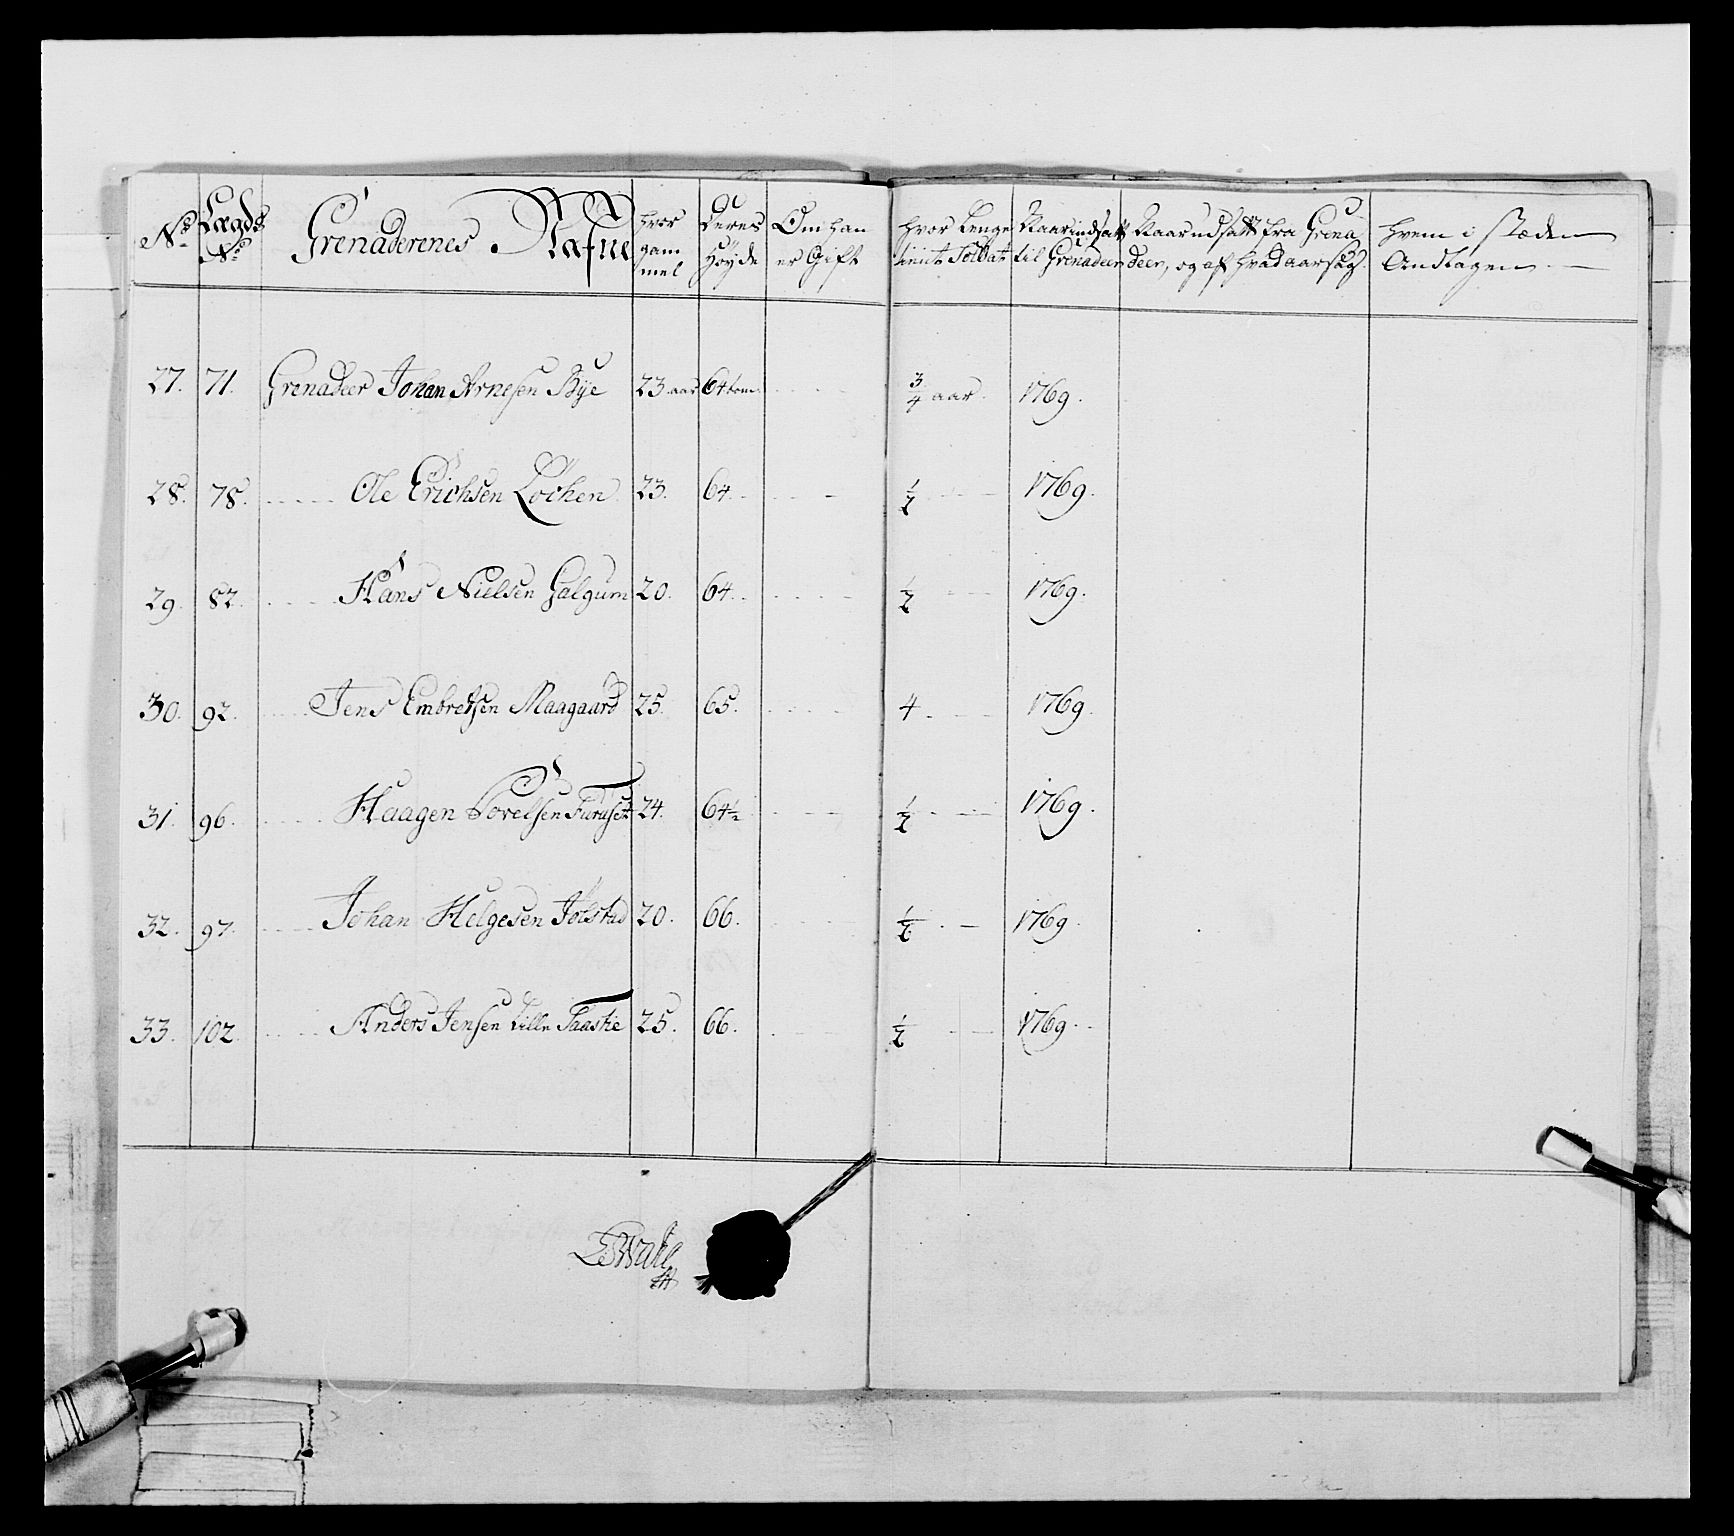 No Lægds No Grenaderenes Nafne hvor gammel Deres Höyde Om han er Gift hvor Lenge tient Soldat Naar indsatt til Grenadeer Naar udsatt fra Grenadeer, og af hvad aarsag. hvem i stæden Andtagen
27. 71. Grenadeer Johan Arnesen Bye 23 aar 64 tom. 3/4 aar. 1769.
28. 78. Ole Erichsen Löchen 23. 64. 1/2 1769.
29. 82. Hans Nielsen Galgum 20. 64. 1/2 1769.
30. 92. Jens Embretsen Maagaard 25. 65. 4. 1769.
31. 96. Haagen Torelsen Furuset 24. 64 1/2 1/2 1769.
32. 97. Johan Helgesen Jölstad 20. 66. 1/2 1769.
33. 102. Anders Jensen Lille Taastie 25. 66. 1/2 1769.